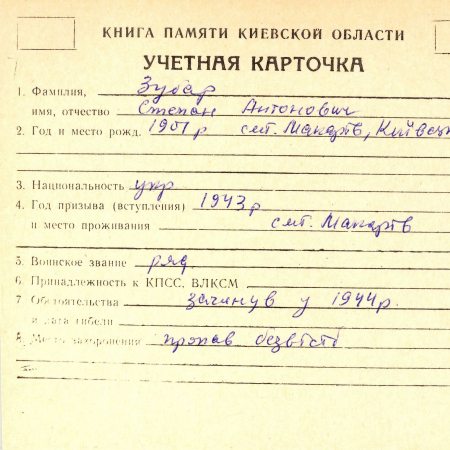 КНИГА ПАМЯТИ КИЕВСКОЙ ОБЛАСТИ
УЧЕТНАЯ КАРТОЧКА
1. Фамилия, Зубар
имя, отчество Степан Антонович
2. Год и место рожд. 1901 р смт. Макарів,
3. Национальность укр
4. Год призыва (вступления) 1943 р
и место проживания смт. Макарів
5. Воинское звание ряд
6. Принадлежность к КПСС, ВЛКСМ
7 Обстоятельства загинув у 1944 р.
и дата гибели
8. Место захоронения пропав безвісті